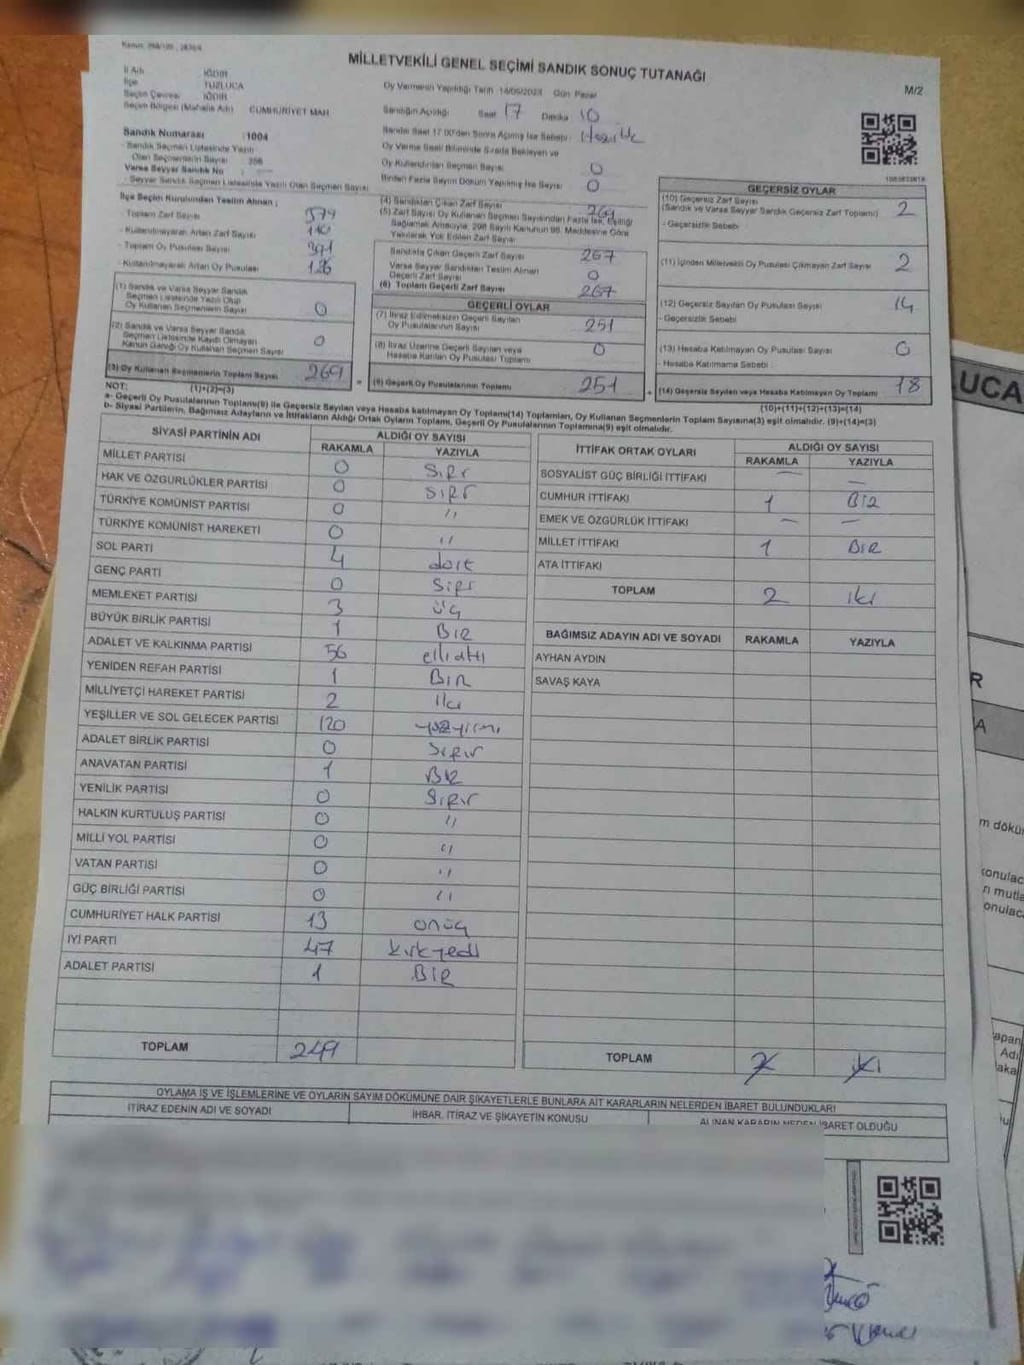 Kanun: 298/105 , 2839/4
MİLLETVEKİLİ GENEL SEÇİMİ SANDIK SONUÇ TUTANAĞI
M/2
İl Adı : IĞDIR
İlçe : TUZLUCA
Seçim Çevresi : IĞDIR
Seçim Bölgesi (Mahalle Adı) : CUMHURİYET MAH
Oy Vermenin Yapıldığı Tarih : 14/05/2023 Gün: Pazar
Sandığın Açıldığı : Saat 17 Dakika 10
Sandık Saat 17:00'den Sonra Açılmış İse Sebebi :
Oy Verme Saati Bitiminde Sırada Bekleyen ve
Oy Kullandırılan Seçmen Sayısı 0
Birden Fazla Sayım Döküm Yapılmış İse Sayısı 0
Sandık Numarası : 1004
- Sandık Seçmen Listesinde Yazılı
Olan Seçmenlerin Sayısı
Varsa Seyyar Sandık No :
- Seyyar Sandık Seçmen Listesinde Yazılı Olan Seçmen Sayısı
İlçe Seçim Kurulundan Teslim Alınan ;
- Toplam Zarf Sayısı 379
- Kullanılmayarak Artan Zarf Sayısı 110
- Toplam Oy Pusulası Sayısı
- Kullanılmayarak Artan Oy Pusulası
(1) Sandık ve Varsa Seyyar Sandık
Seçmen Listesinde Yazılı Olup
Oy Kullanan Seçmenlerin Sayısı 0
(2) Sandık ve Varsa Seyyar Sandık
Seçmen Listesinde Kaydı Olmayan
Kanun Gereği Oy Kullanan Seçmen Sayısı 0
(3) Oy Kullanan Seçmenlerin Toplam Sayısı 269
(1)+(2)=(3)
(4) Sandıktan Çıkan Zarf Sayısı 269
(5) Zarf Sayısı Oy Kullanan Seçmen Sayısından Fazla İse, Eşitliği
Sağlamak Amacıyla; 298 Sayılı Kanunun 98. Maddesine Göre
Yakılarak Yok Edilen Zarf Sayısı
Sandıkta Çıkan Geçerli Zarf Sayısı 267
Varsa Seyyar Sandıktan Teslim Alınan
Geçerli Zarf Sayısı 0
(6) Toplam Geçerli Zarf Sayısı 267
GEÇERLİ OYLAR
(7) İtiraz Edilmeksizin Geçerli Sayılan
Oy Pusulalarının Sayısı 251
(8) İtiraz Üzerine Geçerli Sayılan veya
Hesaba Katılan Oy Pusulası Toplamı 0
(9) Geçerli Oy Pusulalarının Toplamı 251
GEÇERSİZ OYLAR
(10) Geçersiz Zarf Sayısı
(Sandık ve Varsa Seyyar Sandık Geçersiz Zarf Toplamı) 2
- Geçersizlik Sebebi
(11) İçinden Milletvekili Oy Pusulası Çıkmayan Zarf Sayısı 2
(12) Geçersiz Sayılan Oy Pusulası Sayısı 14
- Geçersizlik Sebebi
(13) Hesaba Katılmayan Oy Pusulası Sayısı 0
- Hesaba Katılmama Sebebi
(14) Geçersiz Sayılan veya Hesaba Katılmayan Oy Toplamı 18
(10)+(11)+(12)+(13)=(14)
NOT:
a- Geçerli Oy Pusulalarının Toplamı(9) ile Geçersiz Sayılan veya Hesaba katılmayan Oy Toplamı(14) Toplamları, Oy Kullanan Seçmenlerin Toplam Sayısına(3) eşit olmalıdır. (9)+(14)=(3)
b- Siyasi Partilerin, Bağımsız Adayların ve İttifakların Aldığı Ortak Oyların Toplamı, Geçerli Oy Pusulalarının Toplamına(9) eşit olmalıdır.
SİYASİ PARTİNİN ADI ALDIĞI OY SAYISI
RAKAMLA YAZIYLA
MİLLET PARTİSİ 0 Sıfır
HAK VE ÖZGÜRLÜKLER PARTİSİ 0 Sıfır
TÜRKİYE KOMÜNİST PARTİSİ 0 "
TÜRKİYE KOMÜNİST HAREKETİ 0 "
SOL PARTİ 4 dört
GENÇ PARTİ 0 Sıfır
MEMLEKET PARTİSİ 3 üç
BÜYÜK BİRLİK PARTİSİ 1 BİR
ADALET VE KALKINMA PARTİSİ 56 elli altı
YENİDEN REFAH PARTİSİ 1 BİR
MİLLİYETÇİ HAREKET PARTİSİ 2 iki
YEŞİLLER VE SOL GELECEK PARTİSİ 120 yüzyirmi
ADALET BİRLİK PARTİSİ 0 Sıfır
ANAVATAN PARTİSİ 1 BİR
YENİLİK PARTİSİ 0 Sıfır
HALKIN KURTULUŞ PARTİSİ 0 "
MİLLİ YOL PARTİSİ 0 "
VATAN PARTİSİ 0 "
GÜÇ BİRLİĞİ PARTİSİ 0 "
CUMHURİYET HALK PARTİSİ 13 onüç
İYİ PARTİ 47 kırkyedi
ADALET PARTİSİ 1 BİR
TOPLAM 249
İTTİFAK ORTAK OYLARI ALDIĞI OY SAYISI
RAKAMLA YAZIYLA
SOSYALİST GÜÇ BİRLİĞİ İTTİFAKI — —
CUMHUR İTTİFAKI 1 BİR
EMEK VE ÖZGÜRLÜK İTTİFAKI — —
MİLLET İTTİFAKI 1 BİR
ATA İTTİFAKI
TOPLAM 2 iki
BAĞIMSIZ ADAYIN ADI VE SOYADI RAKAMLA YAZIYLA
AYHAN AYDIN
SAVAŞ KAYA
TOPLAM 2 iki
OYLAMA İŞ VE İŞLEMLERİNE VE OYLARIN SAYIM DÖKÜMÜNE DAİR ŞİKAYETLERLE BUNLARA AİT KARARLARIN NELERDEN İBARET BULUNDUKLARI
İTİRAZ EDENİN ADI VE SOYADI İHBAR, İTİRAZ VE ŞİKAYETİN KONUSU ALINAN KARARIN NEDEN İBARET OLDUĞU
LUCA